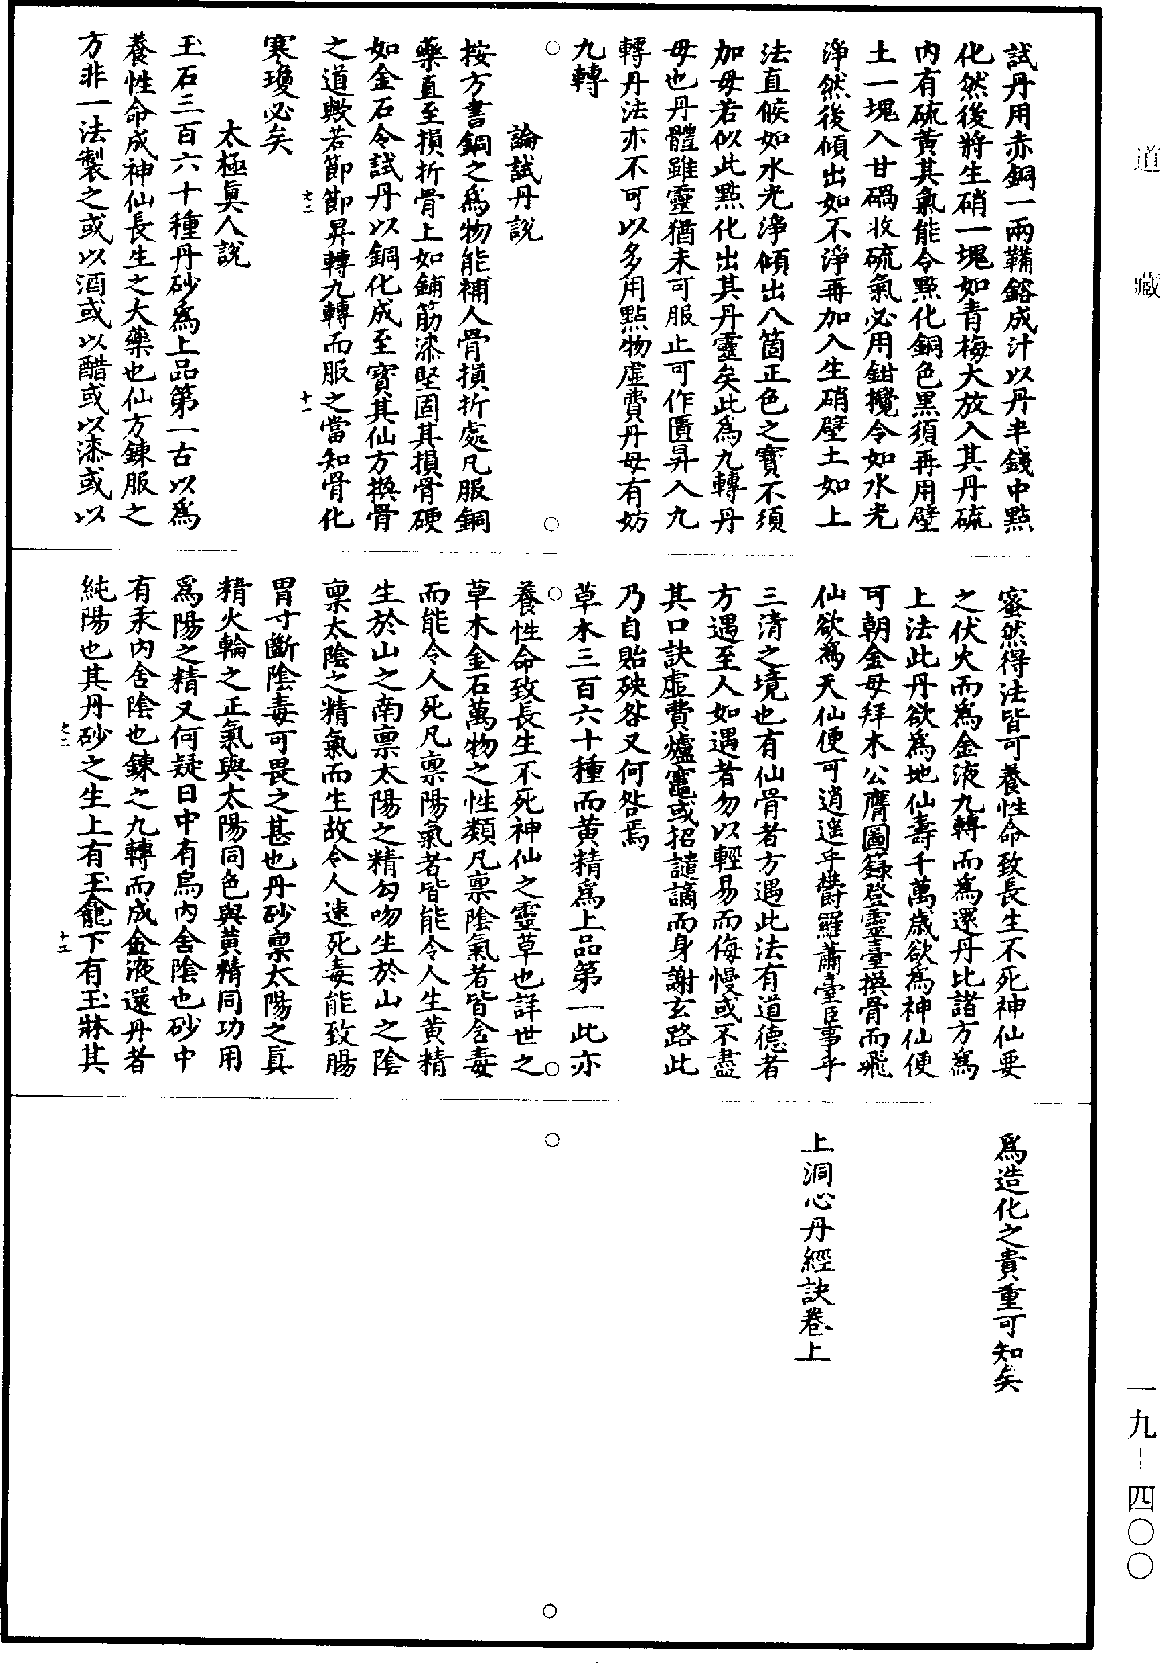 道藏
試丹用赤銅一兩鞴鎔成汁以丹半錢中點
化然後將生硝一塊如青梅大放入其丹硫
內有硫黃其氣能令點化銅色黑須再用壁
土一塊入甘堝收硫氣必用鉗攪令如水光
淨然後傾出如不淨再加入生硝壁土如上
法直候如水光淨傾出八箇正色之寶不須
加母若似此點化出其丹靈矣此為九轉丹
母也丹體雖靈猶未可服止可作匱昇入九
轉丹法亦不可以多用點物虛費丹母有妨
九轉
論試丹說
按方書銅之為物能補人骨損折處凡服銅
藥直至損折骨上如銲筋漆堅固其損骨硬
如金石令試丹以銅化成至寶其仙方換骨
之道數若節節昇轉九轉而服之當知骨化
寒瓊必矣
太極真人說
玉石三百六十種丹砂為上品第一古以為
養性命成神仙長生之大藥也仙方鍊服之
方非一法製之或以酒或以醋或以漆或以
蜜然得法皆可養性命致長生不死神仙要
之伏火而為金液九轉而為還丹比諸方為
上法此丹欲為地仙壽千萬歲欲為神仙便
可朝金母拜木公膺圖籙登靈臺換骨而飛
仙欲為天仙便可逍遥乎鬱羅蕭臺臣事乎
三清之境也有仙骨者方遇此法有道德者
方遇至人如遇者勿以輕易而侮慢或不盡
其口訣虛費爐竈或招譴謫而身謝玄路此
乃自貽殃咎又何咎焉
草木三百六十種而黃精為上品第一此亦
養性命致長生不死神仙之靈草也詳世之
草木金石萬物之性類凡稟陰氣者皆含毒
而能令人死凡稟陽氣者皆能令人生黃精
生於山之南稟太陽之精勾吻生於山之陰
稟太陰之精氣而生故令人速死毒能致腸
胃寸斷陰毒可畏之甚也丹砂稟太陽之真
精火輪之正氣與太陽同色與黃精同功用
為陽之精又何疑日中有烏內含陰也砂中
有汞內含陰也鍊之九轉而成金液還丹者
純陽也其丹砂之生上有玉龕下有玉牀其
為造化之貴重可知矣
上洞心丹經訣卷上
一九–四〇〇